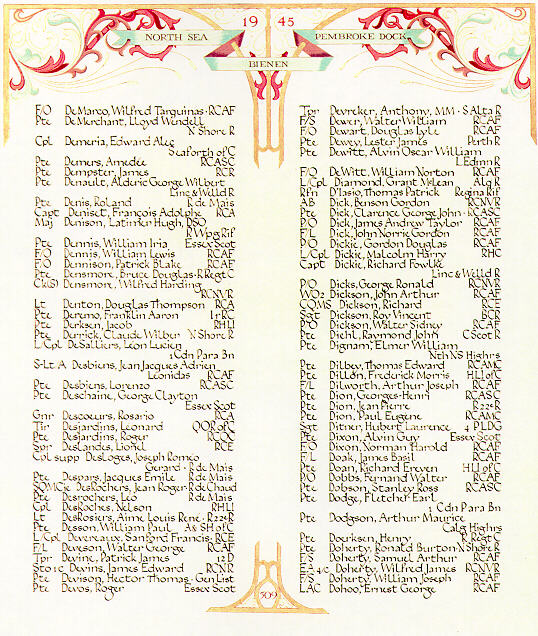 19 45
NORTH SEA
PEMBROKE DOCK
BIENEN
F/O DeMarco, Wilfred Tarquinas · RCAF
Pte DeMerchant, Lloyd Wendell
N Shore R
Cpl Demeria, Edward Aleg
Seaforth of C
Pte Demers, Amedée RCASC
Pte Dempster, James RCR
Pte Denault, Alderic George Wilbert
Linc & Welld R
Pte Denis, Roland R de Mais
Capt Deniset, François Adolphe RCA
Maj Denison, Latimer Hugh, DSO
R Wpg Rif
Pte Dennis, William Iria Essex Scot
F/O Dennis, William Lewis RCAF
F/O Dennison, Patrick Blake RCAF
Pte Densmore, Bruce Douglas · R Regt C
Ck(S) Densmore, Wilfred Harding
RCNVR
Lt Denton, Douglas Thompson RCA
Pte Deremo, Franklin Aaron Ir RC
Pte Derksen, Jacob RHLI
Pte Derrick, Claude Wilber N Shore R
L/Cpl DeSalliers, Léon Lucien
1 Cdn Para Bn
S-Lt A Desbiens, Jean Jacques Adrien
Léonidas RCAF
Pte Desbiens, Lorenzo RCASC
Pte Deschaine, George Clayton
Essex Scot
Gnr Descoeurs, Rosario RCA
Tir Desjardins, Leonard QOR of C
Pte Desjardins, Roger RCOC
Spr Deslandes, Lionel RCE
Cpl supp DesLoges, Joseph Roméo
Gerard · R de Mais
Pte Despars, Jacques Emile R de Mais
SQMCie DesRochers, Jean Roger · R de Chaud
Pte Desrochers, Léo R de Mais
Cpl DesRoches, Nelson RHLI
Lt DesRosiers, Aime Louis René · R 22e R
Pte Desson, William Paul A & SH of C
L/Cpl Devereaux, Sanford Francis · RCE
F/L Deveson, Walter George RCAF
Tpr Devine, Patrick James 12 D
Sto 1c Devins, James Edward RCNR
Pte Devison, Hector Thomas · Gen List
Pte Devos, Roger Essex Scot
Tpr Devreker, Anthony, MM · S Alta R
F/S Dewer, Walter William RCAF
F/O Dewart, Douglas Lyle RCAF
Pte Dewey, Lester James Perth R
Pte Dewitt, Alvin Oscar William
L Edmn R
F/O DeWitt, William Norton RCAF
L/Cpl Diamond, Grant McLean Alq R
Rfn D'Iasio, Thomas Patrick Regina Rif
AB Dick, Benson Gordon RCNVR
Pte Dick, Clarence George John · RCASC
P/O Dick, James Andrew Taylor RCAF
F/L Dick, John Norrie Gordon RCAF
P/O Dickie, Gordon Douglas RCAF
L/Cpl Dickie, Malcolm Harry RHC
Capt Dickie, Richard Fowlke
Linc & Welld R
P/O Dicks, George Ronald RCNVR
WO2 Dickson, John Arthur RCAF
CQMS Dickson, Richard RCE
Sgt Dickson, Roy Vincent BCR
P/O Dickson, Walter Sidney RCAF
Pte Diehl, Raymond John C Scot R
Pte Dignam, Elmer William
Nth NS Highrs
Pte Dilbey, Thomas Edward RCAMC
Pte Dillon, Frederick Morris HLI of C
F/L Dilworth, Arthur Joseph RCAF
Pte Dion, Georges-Henri RCASC
Pte Dion, Jean Pierre R 22e R
Pte Dion, Paul Eugene RCAMC
Sgt Ditner, Hubert Laurence 4 PLDG
Pte Dixon, Alvin Guy Essex Scot
F/O Dixon, Norman Harold RCAF
F/L Doak, James Basil RCAF
Pte Doan, Richard Ereven HLI of C
P/O Dobbs, Fernand Walter RCAF
Pte Dobson, Stanley Ross RCASC
Pte Dodge, Fletcher Earl
1 Cdn Para Bn
Pte Dodgson, Arthur Maurice
Calg Highrs
Pte Doerksen, Henry R Regt C
Pte Doherty, Ronald Burton · N Shore R
F/S Doherty, Samuel Arthur RCAF
EA 4/c Doherty, Wilfred James RCNVR
F/S Doherty, William Joseph RCAF
LAC Dohoo, Ernest George RCAF
509